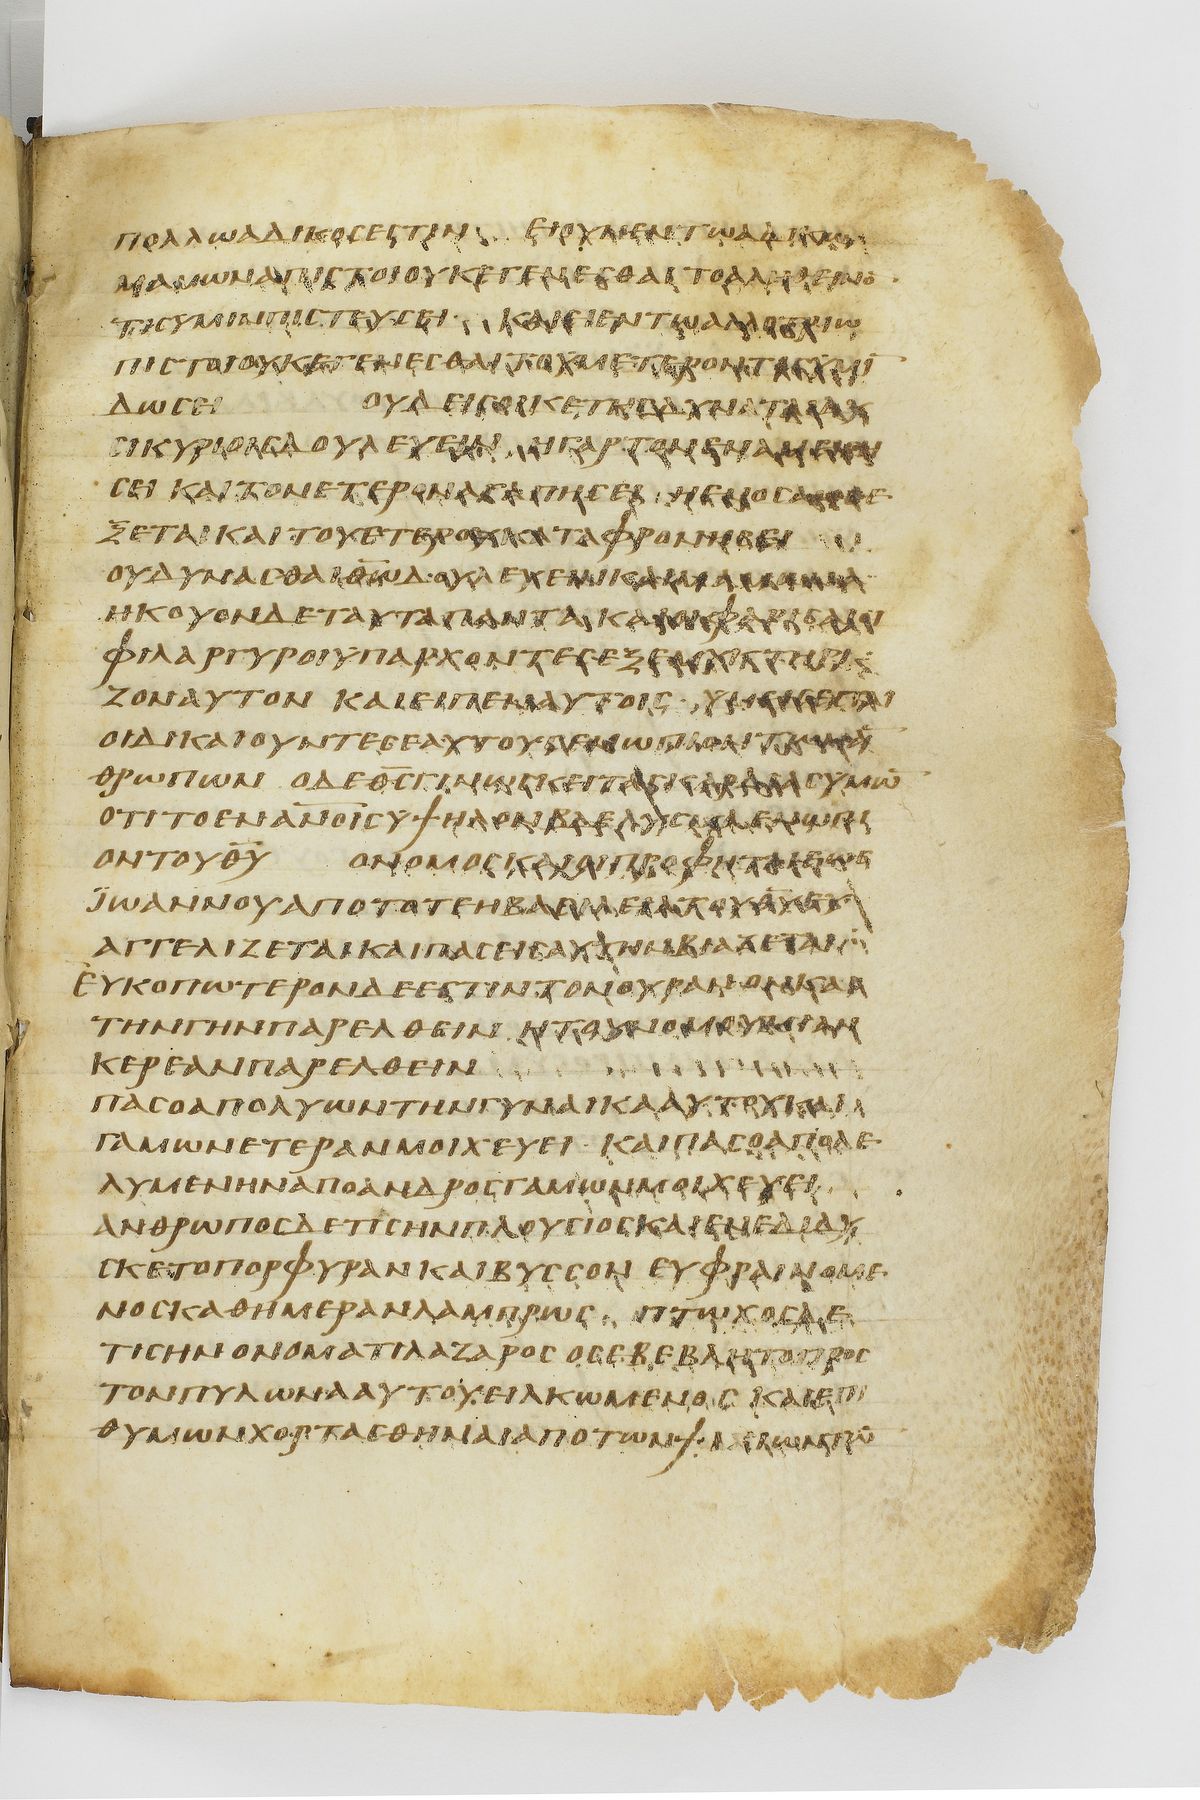 πολλωαδικοσεστιν ειουνεντωαδικω
μαμωναπιστοιουκεγενεσθαιτοαληθεινο
τισυμινπιστευσει καιειεντωαλλοτριω
πιστοιουκεγενεσθαιτουμετεροντισυμι
δωσει ουδεισοικετησδυναταιδυ
σικυριοισδουλευειν ηγαρτονεναμειση
σει καιτονετεροναγαπησει ηενοσανθε
ξεταικαιτουετερουκαταφρονησει
ουδυνασθαιθ̅ω̅δουλευεινκαιμαμωνα
ηκουονδεταυταπαντα καιοιφαρισαιοι
φιλαργυροιυπαρχοντεσεξεμυκτηρι
ζοναυτον καιειπεναυτοισ υμεισεσται
οιδικαιουντεσεαυτουσενωπιοντωναν
θρωπων οδεθ̅σ̅γινωσκειτασκαρδιασυμω̅
οτιτοενανοισυψηλονβδελυγμαενωπι
οντουθ̅υ̅ ονομοσκαιοιπροφηταιεωσ
ϊωαννουαποτοτεηβασιλειατουθ̅υ̅ευ
αγγελιζεταικαιπασεισαυτηνβιαζεται
ευκοπωτερονδεεστιντονουρανονκαι
τηνγηνπαρελθειν ητουνομουμιαν
κερεανπαρελθειν
πασοαπολυωντηνγυναικααυτουκαι
γαμωνετερανμοιχευει καιπασοαπολε
λυμενηναποανδροσγαμωνμοιχευει
ανθρωποσδετισηνπλουσιοσκαιενεδιδυ
σκετοπορφυρανκαιβυσσον ευφραινομε
νοσκαθημερανλαμπρωσ πτωχοσδε
τισηνονοματιλαζαροσ οσεβεβλητοπροσ
τονπυλωνααυτου ειλκωμενοσ καιεπι
θυμωνχορτασθηναιαποτωνψιχιωντω̅